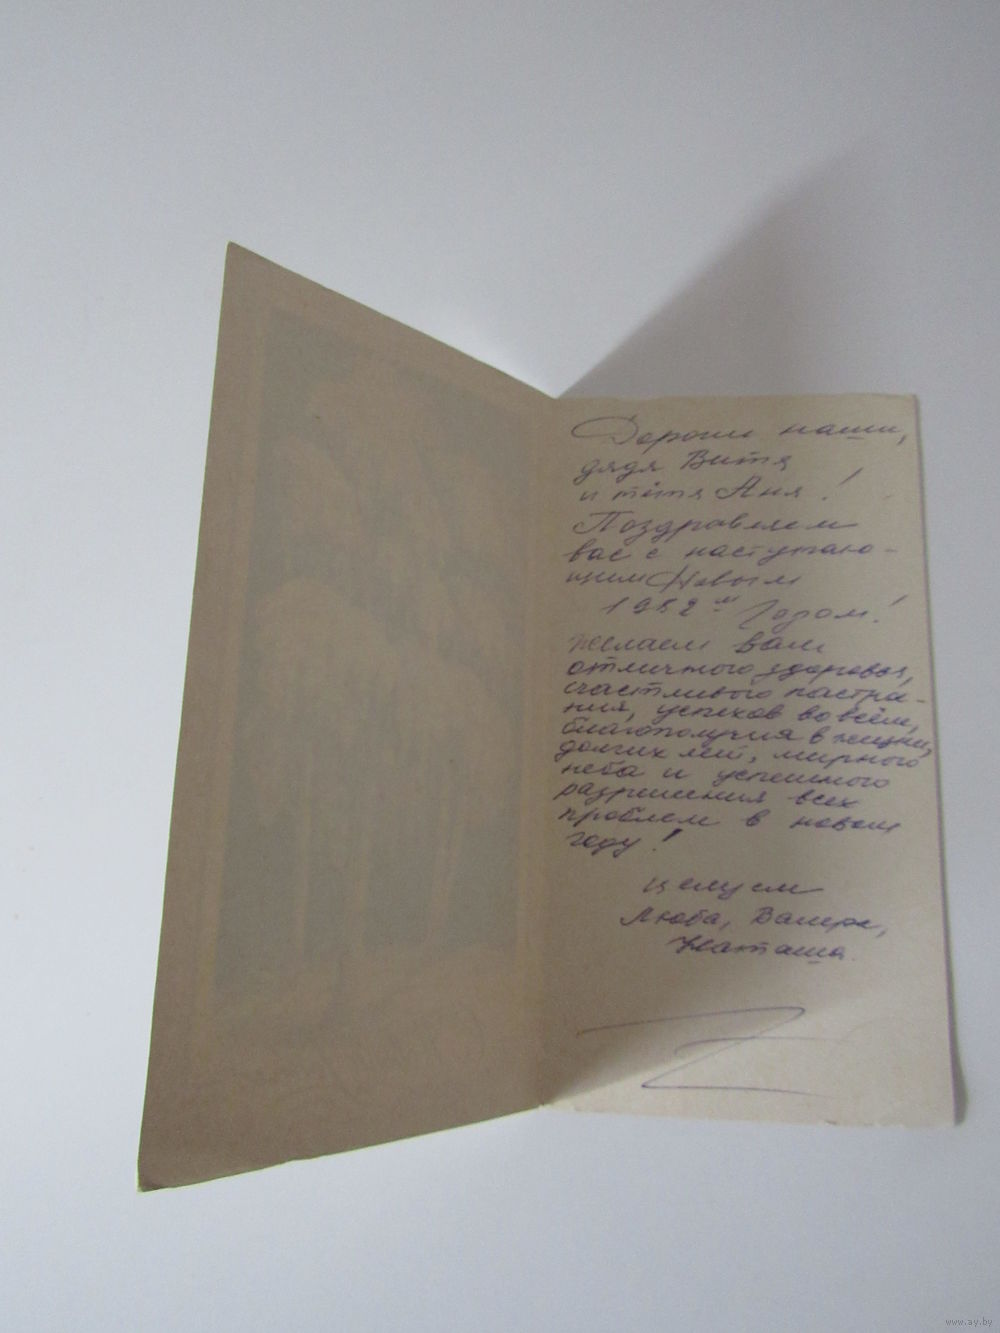 Дороги наши,
дядя Витя
и тётя Аня!
Поздравляем
вас с наступаю-
щим Новым
1982ᵐ Годом!
желаем вам
отличного здоровья,
счастливого настрое-
ния, успехов во всём,
благополучия в жизни,
долгих лет, мирного
неба и успешного
разрешения всех
проблем в новом
году!
целуем
Люба, Валера,
Наташа.
www.ay.by